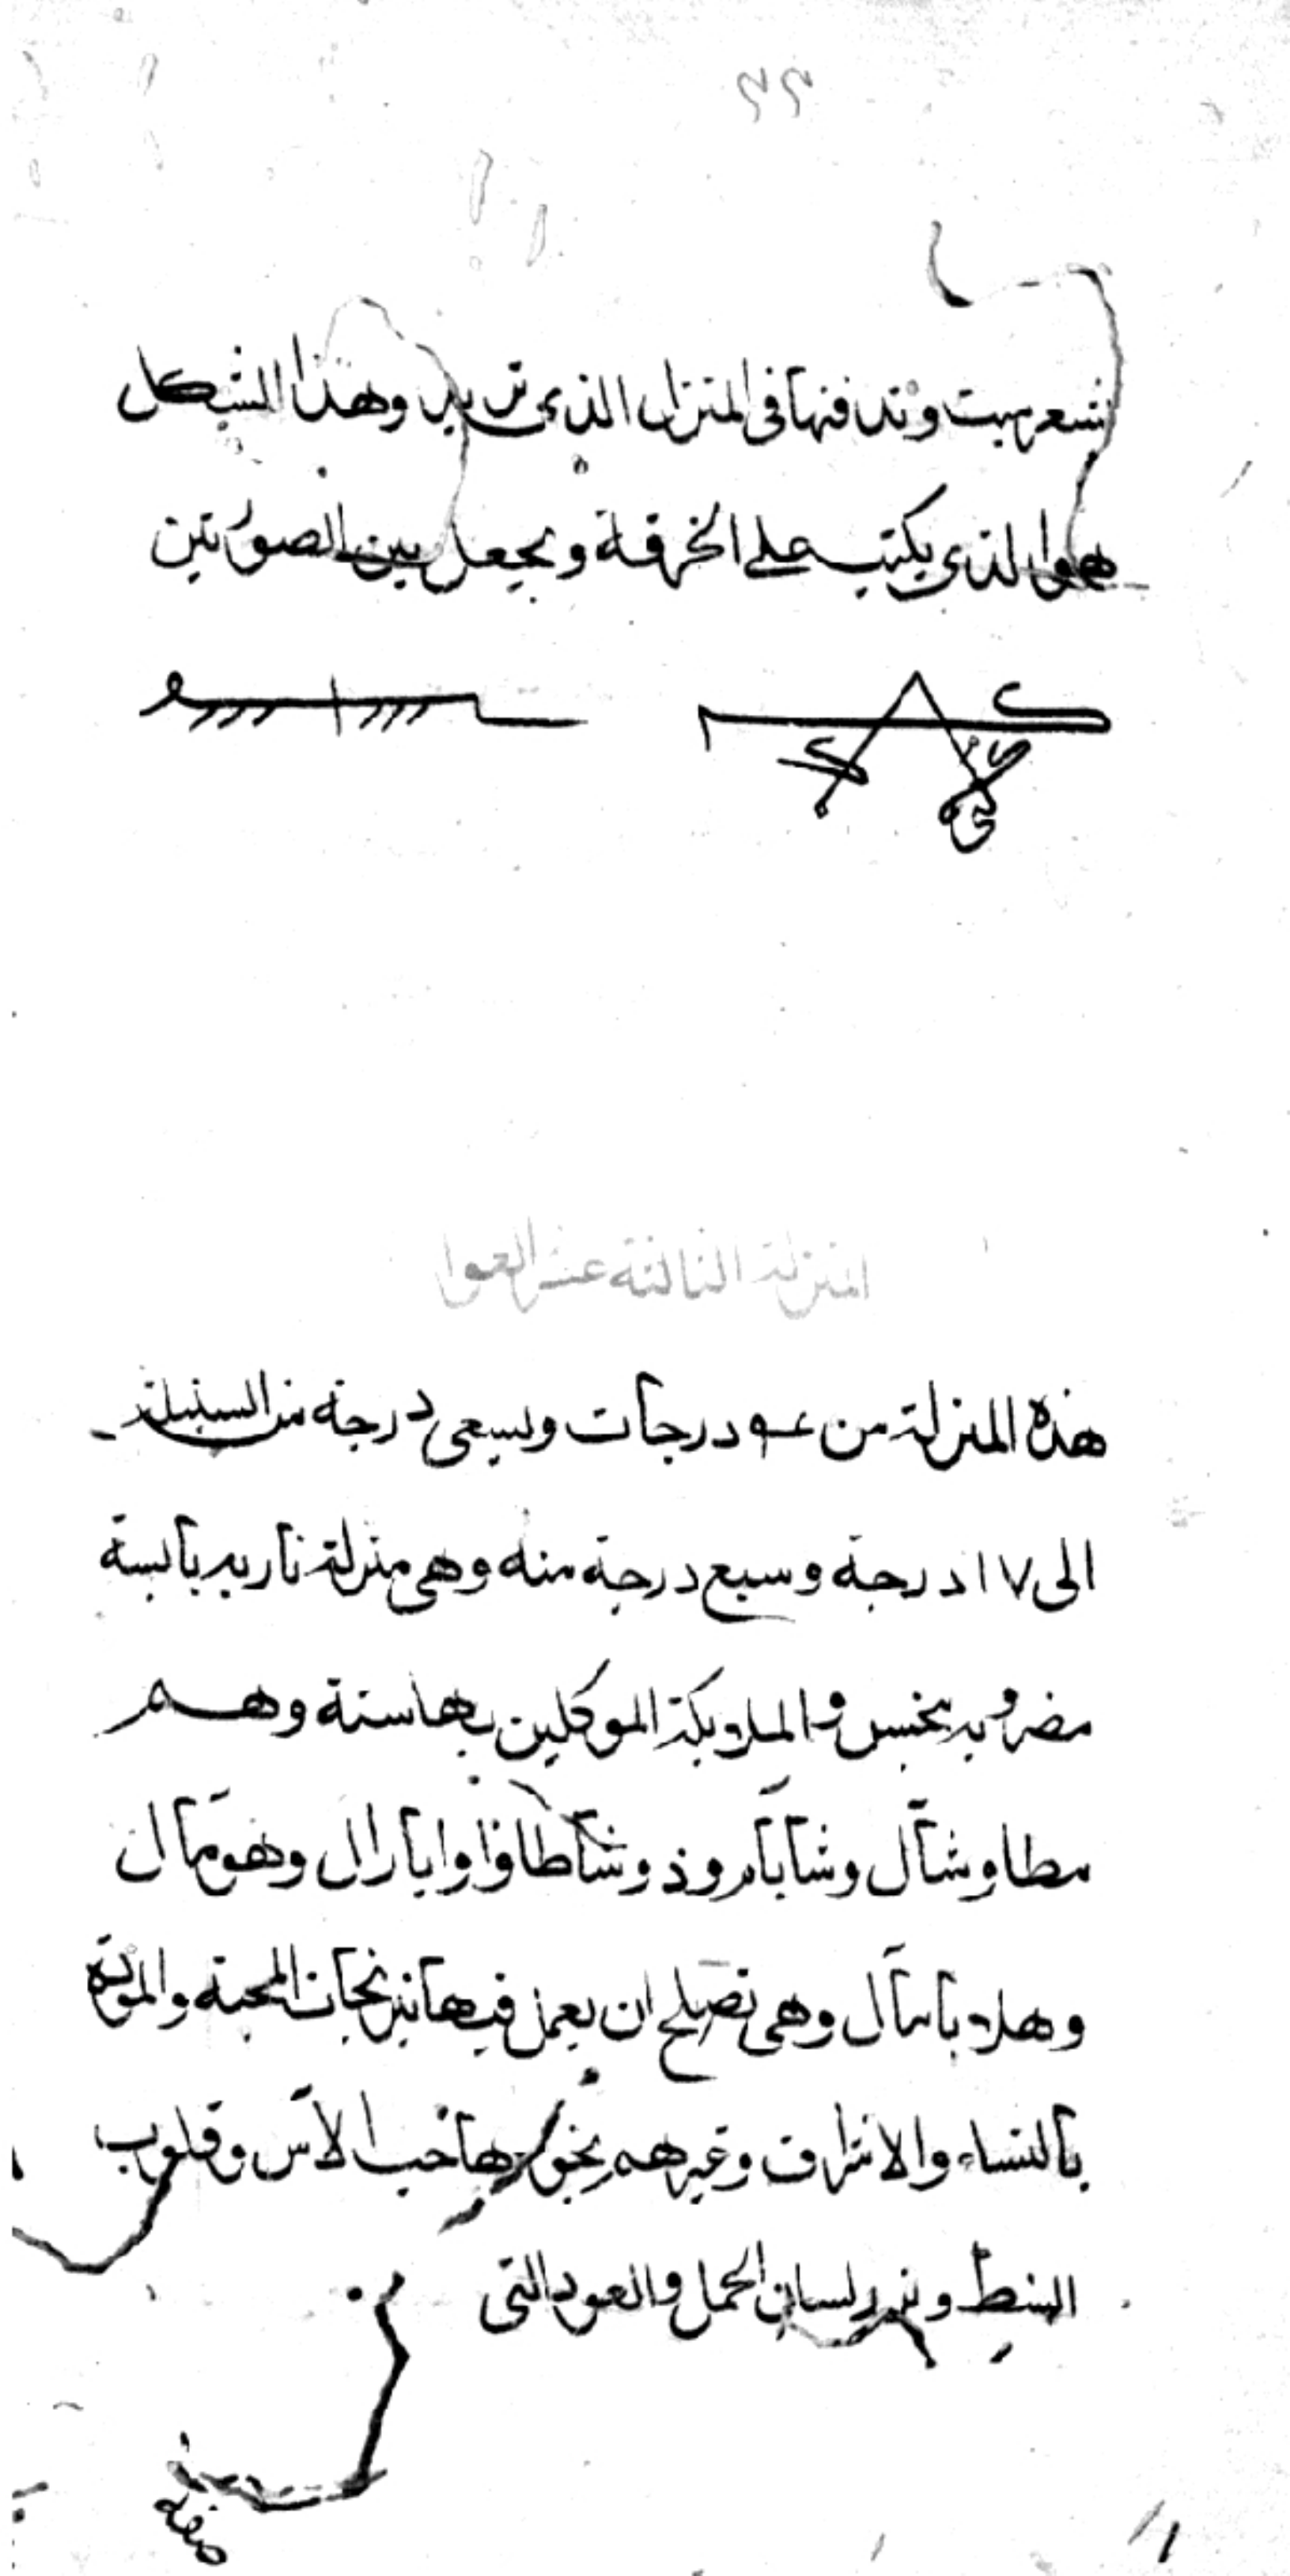 ٢٢
بشعر ميت وتدفنها فى المنزل الذى تريد وهذا الشكل
هوا الذى يكتب على الخرقة ويجعل بين الصورتين
المنزلة الثالثة عشر العوا
هذه المنزلة من درجات وسبعى درجة من السنبلة
الى ١٧ درجة وسبع درجة منه وهى منزلة ناريه يابسة
بنحس والملايكة الموكلين بها ستة وهم
مطاوشآل وشآبآمروذ وشآطافا وايارال وهومآال
وهلا بآسآل وهى تصلح ان يعمل فيها نيرنجات المحبة والمودة
بالنساء والاشراف وغيرهم بخورها حب الآس وقلوب
السنط وبزر لسان الحمل والعود التى
صفة